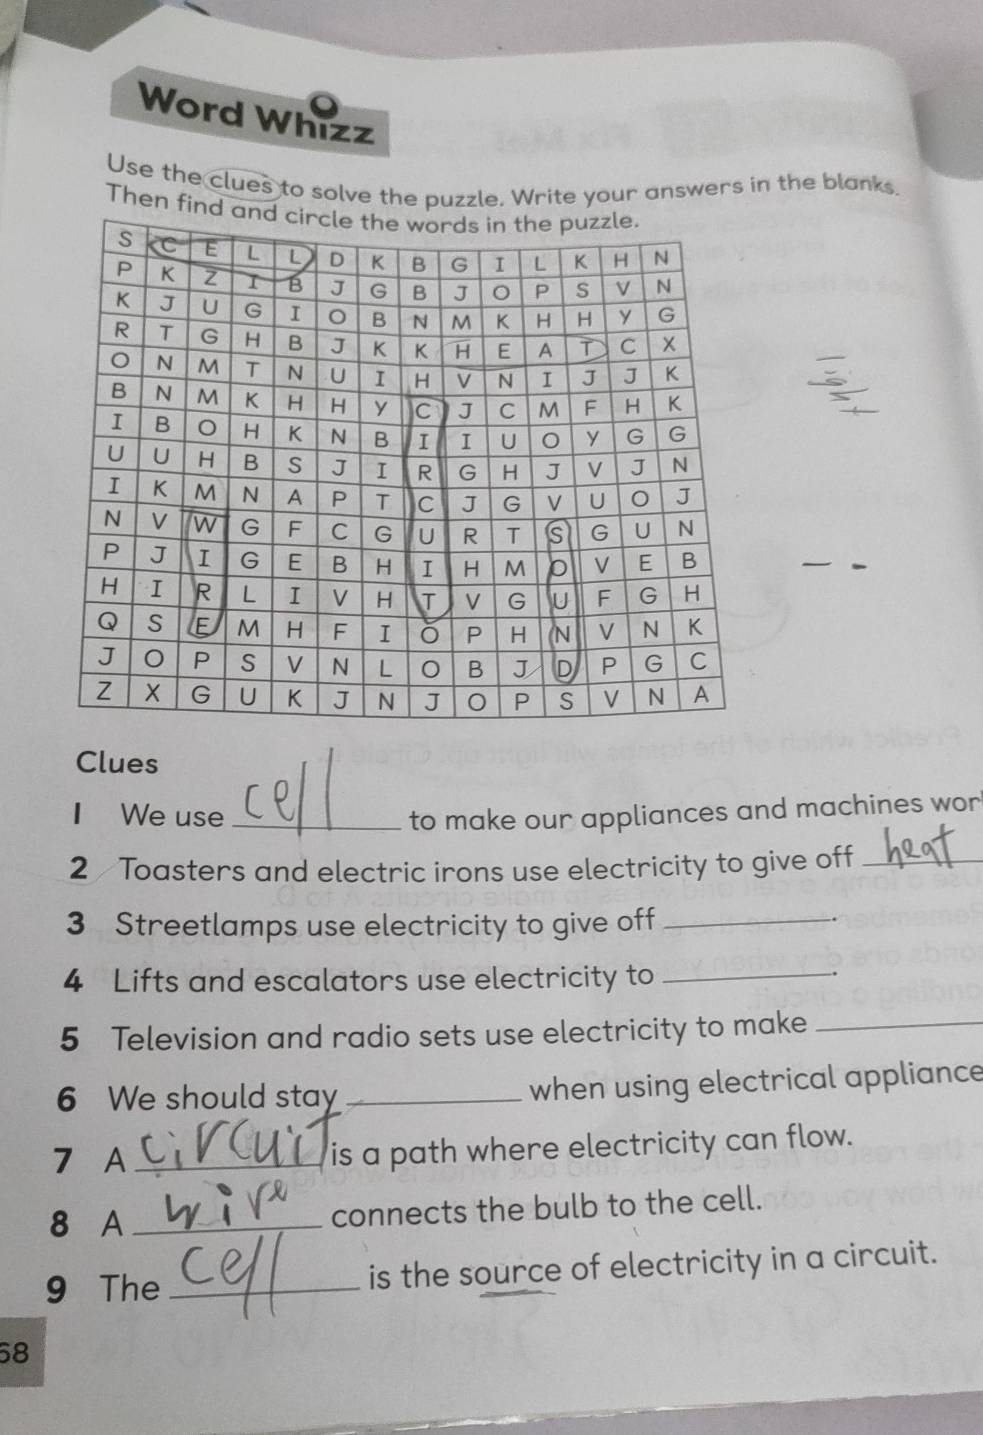 Word Whizz
Use the clues to solve the puzzle. Write your answers in the blanks.
Then find and circle the words in the puzzle.
S C E L L D K B G I L K H N
P K Z I B J G B J O P S V N
K J U G I O B N M K H H Y G
R T G H B J K K H E A T C X
O N M T N U I H V N I J J K
B N M K H H Y C J C M F H K
I B O H K N B I I U O Y G G
U U H B S J I R G H J V J N
I K M N A P T C J G V U O J
N V W G F C G U R T S G U N
P J I G E B H I H M O V E B
H I R L I V H T V G U F G H
Q S E M H F I O P H N V N K
J O P S V N L O B J D P G C
Z X G U K J N J O P S V N A
Clues
1 We use cell to make our appliances and machines wor
2 Toasters and electric irons use electricity to give off heat
3 Streetlamps use electricity to give off ______.
4 Lifts and escalators use electricity to ______.
5 Television and radio sets use electricity to make ______
6 We should stay ______ when using electrical appliance
7 A circuit is a path where electricity can flow.
8 A wire connects the bulb to the cell.
9 The cell is the source of electricity in a circuit.
68